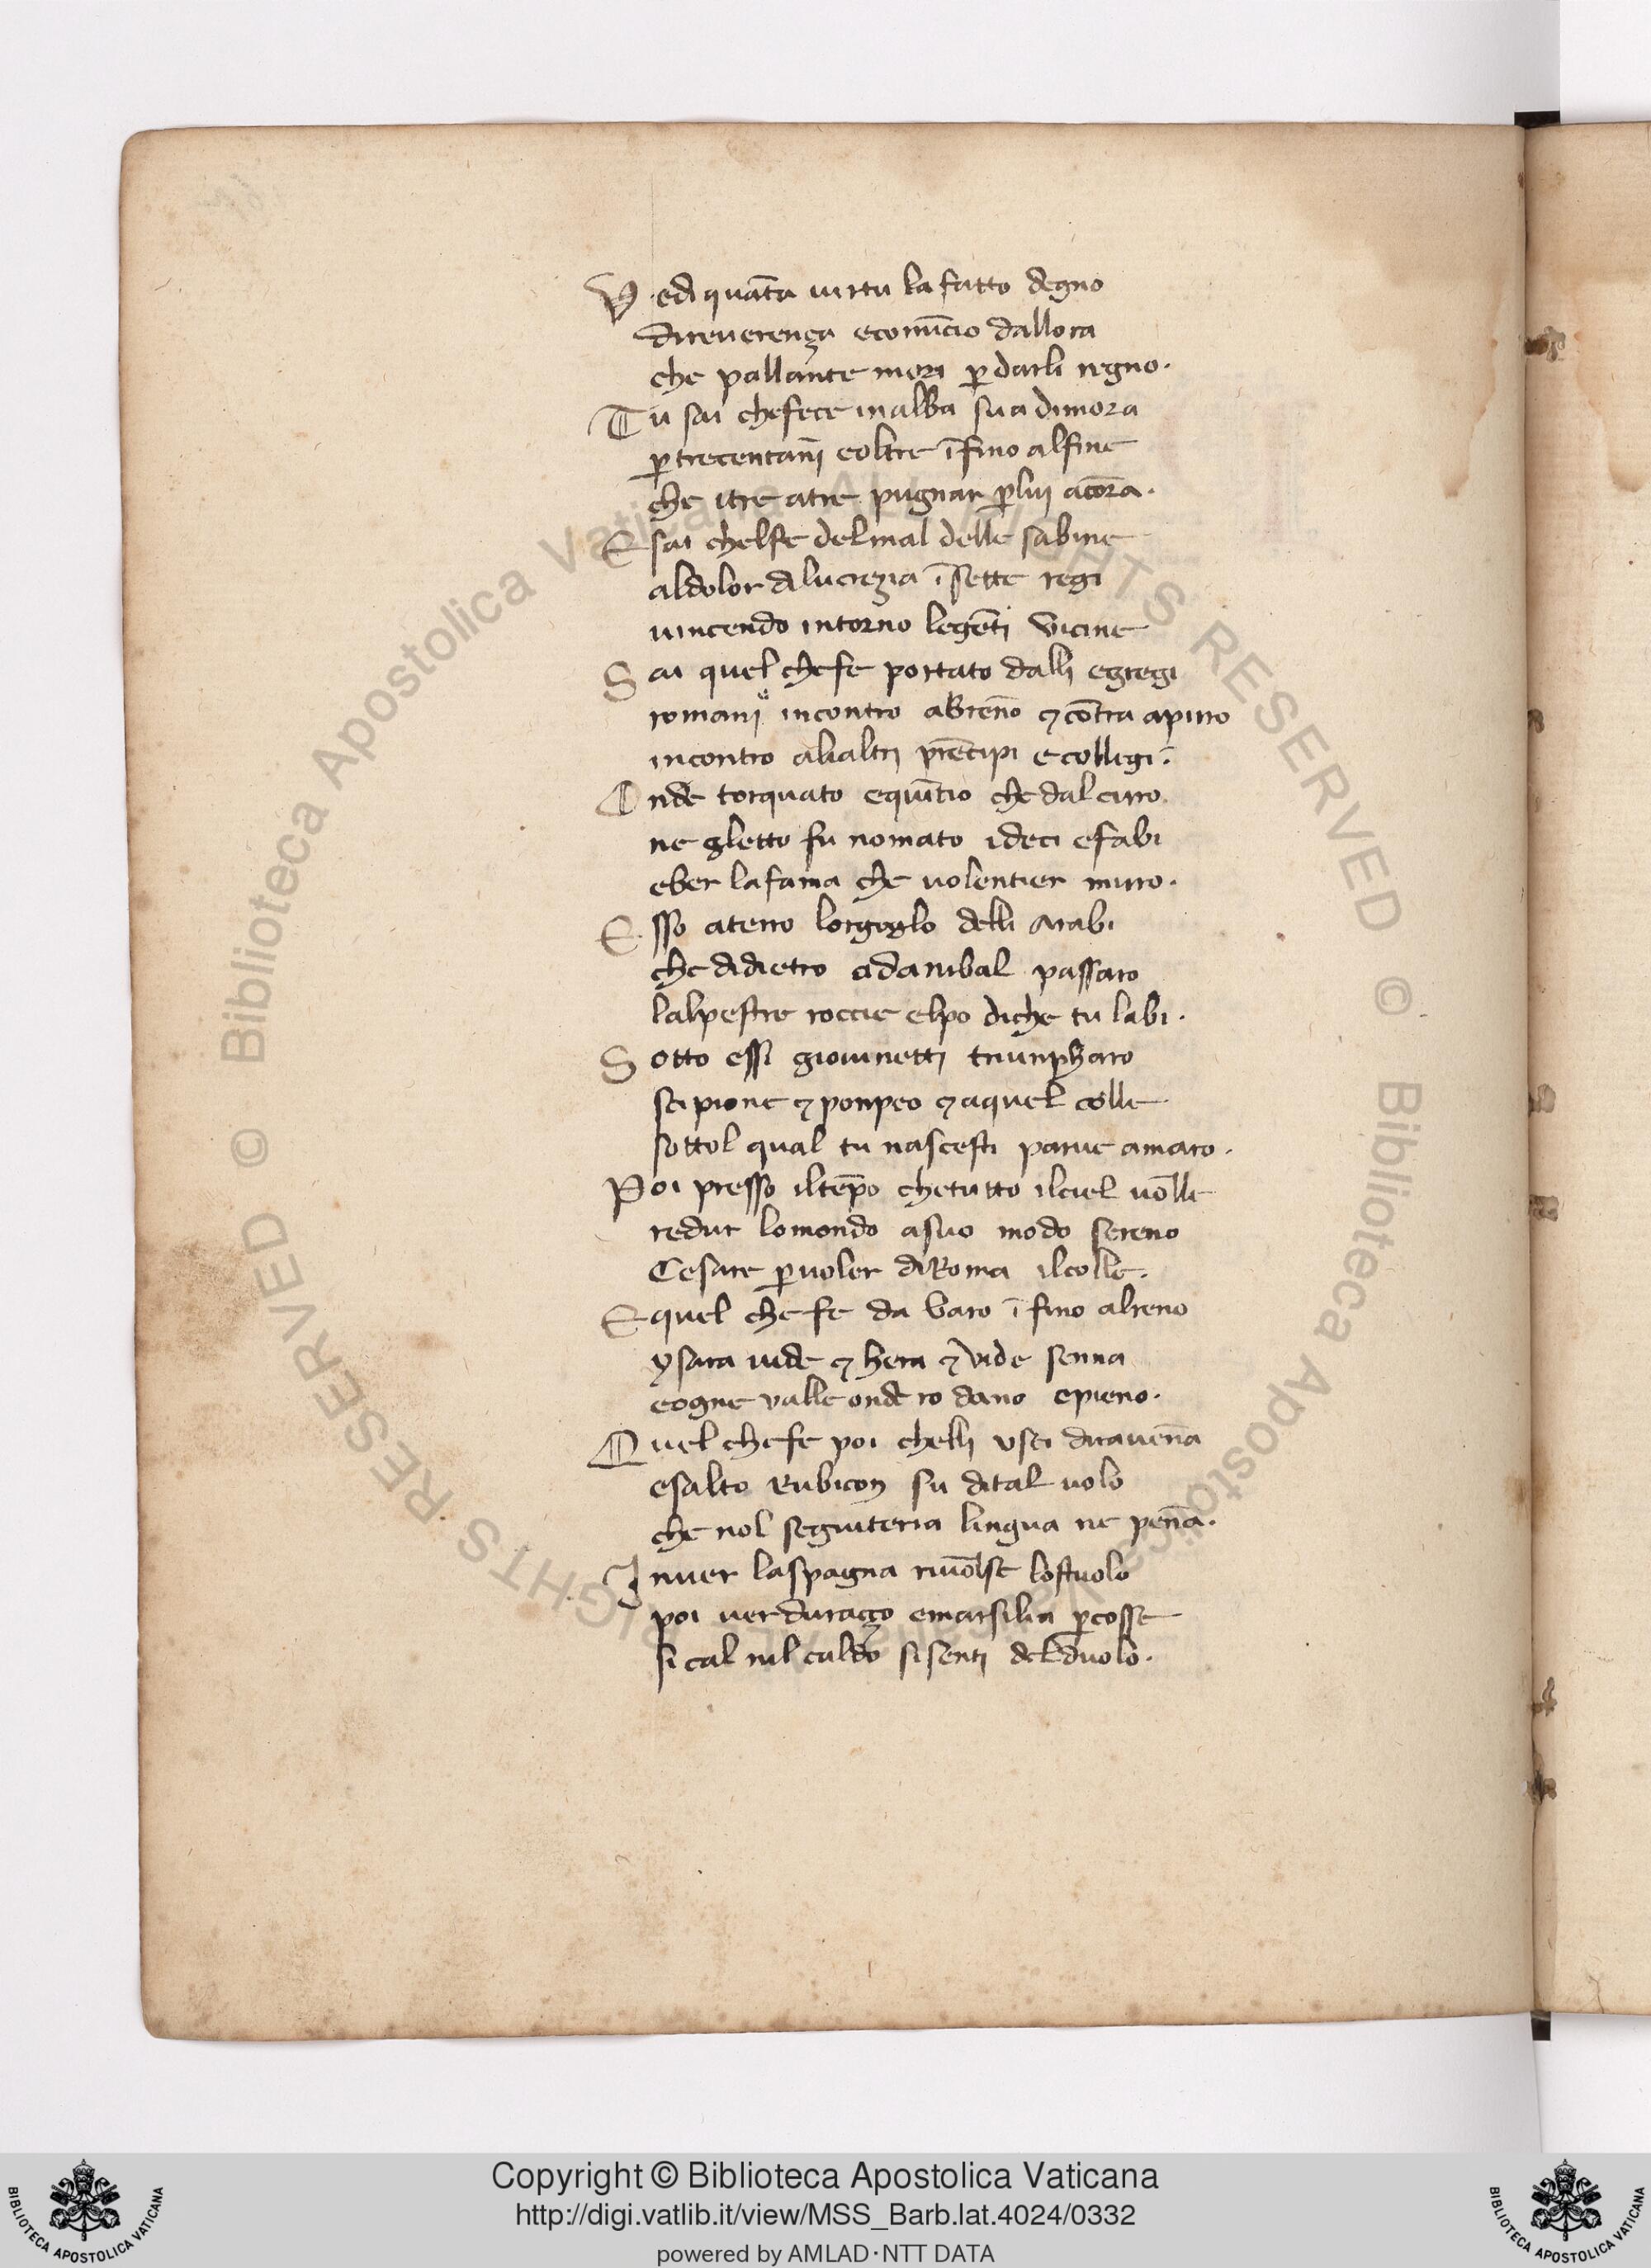 V edi quāta uirtu la fatto degno
direuerença ecomīcio dallora
che pallante mori ꝑ darli regno.
Tu sai chefece inalba sua dimora
ꝑ trecentanī eoltre ī fino alfine
che itre atre pugnar ꝑ lui acōra.
E sai chelfe delmal delle sabine
aldolor di lucrezia ī sette regi
uincendo intorno legēti vicine
S ai quel chefe portato dalli egregi
romani incontro abrēno ⁊ cōtra apirro
incontro alialtri prēcipi ecollegi.
O nde torquato equītio che dal cirro
ne gletto fu nomato ideci efabi
eber lafama che uolentier mirro.
E sso aterro lorgoglo delli arabi
che didietro adanibal passaro
lalpestre roccie elpo diche tu labi.
S otto essi giouinetti triunpharo
scipione ⁊ ponpeo ⁊ aquel colle
sottol qual tu nascesti parue amaro.
P oi presso iltēpo chetutto ilciel uōlle
redur lomondo asuo modo sereno
Cesare ꝑ uoler di Roma ilcolle.
E quel che fe da varo ī fino alreno
ysara uide ⁊ hera ⁊ vide senna
eogne valle onde rodano epieno.
Q uel chefe poi chelli usci dirauēna
esalto Rubicon fu dital uolo
che nol seguiteria lingua ne pēna.
I nuer laspagna riuōlse lostuolo
poi uer duraço emarsilia ꝑcosse
si cal nil caldo sisenti del duolo.
© Biblioteca Apostolica Vaticana ALL RIGHTS RESERVED © Biblioteca Apostolica Vaticana ALL RIGHTS RESERVED
Copyright © Biblioteca Apostolica Vaticana
http://digi.vatlib.it/view/MSS_Barb.lat.4024/0332
powered by AMLAD·NTT DATA
BIBLIOTECA APOSTOLICA VATICANA
BIBLIOTECA APOSTOLICA VATICANA